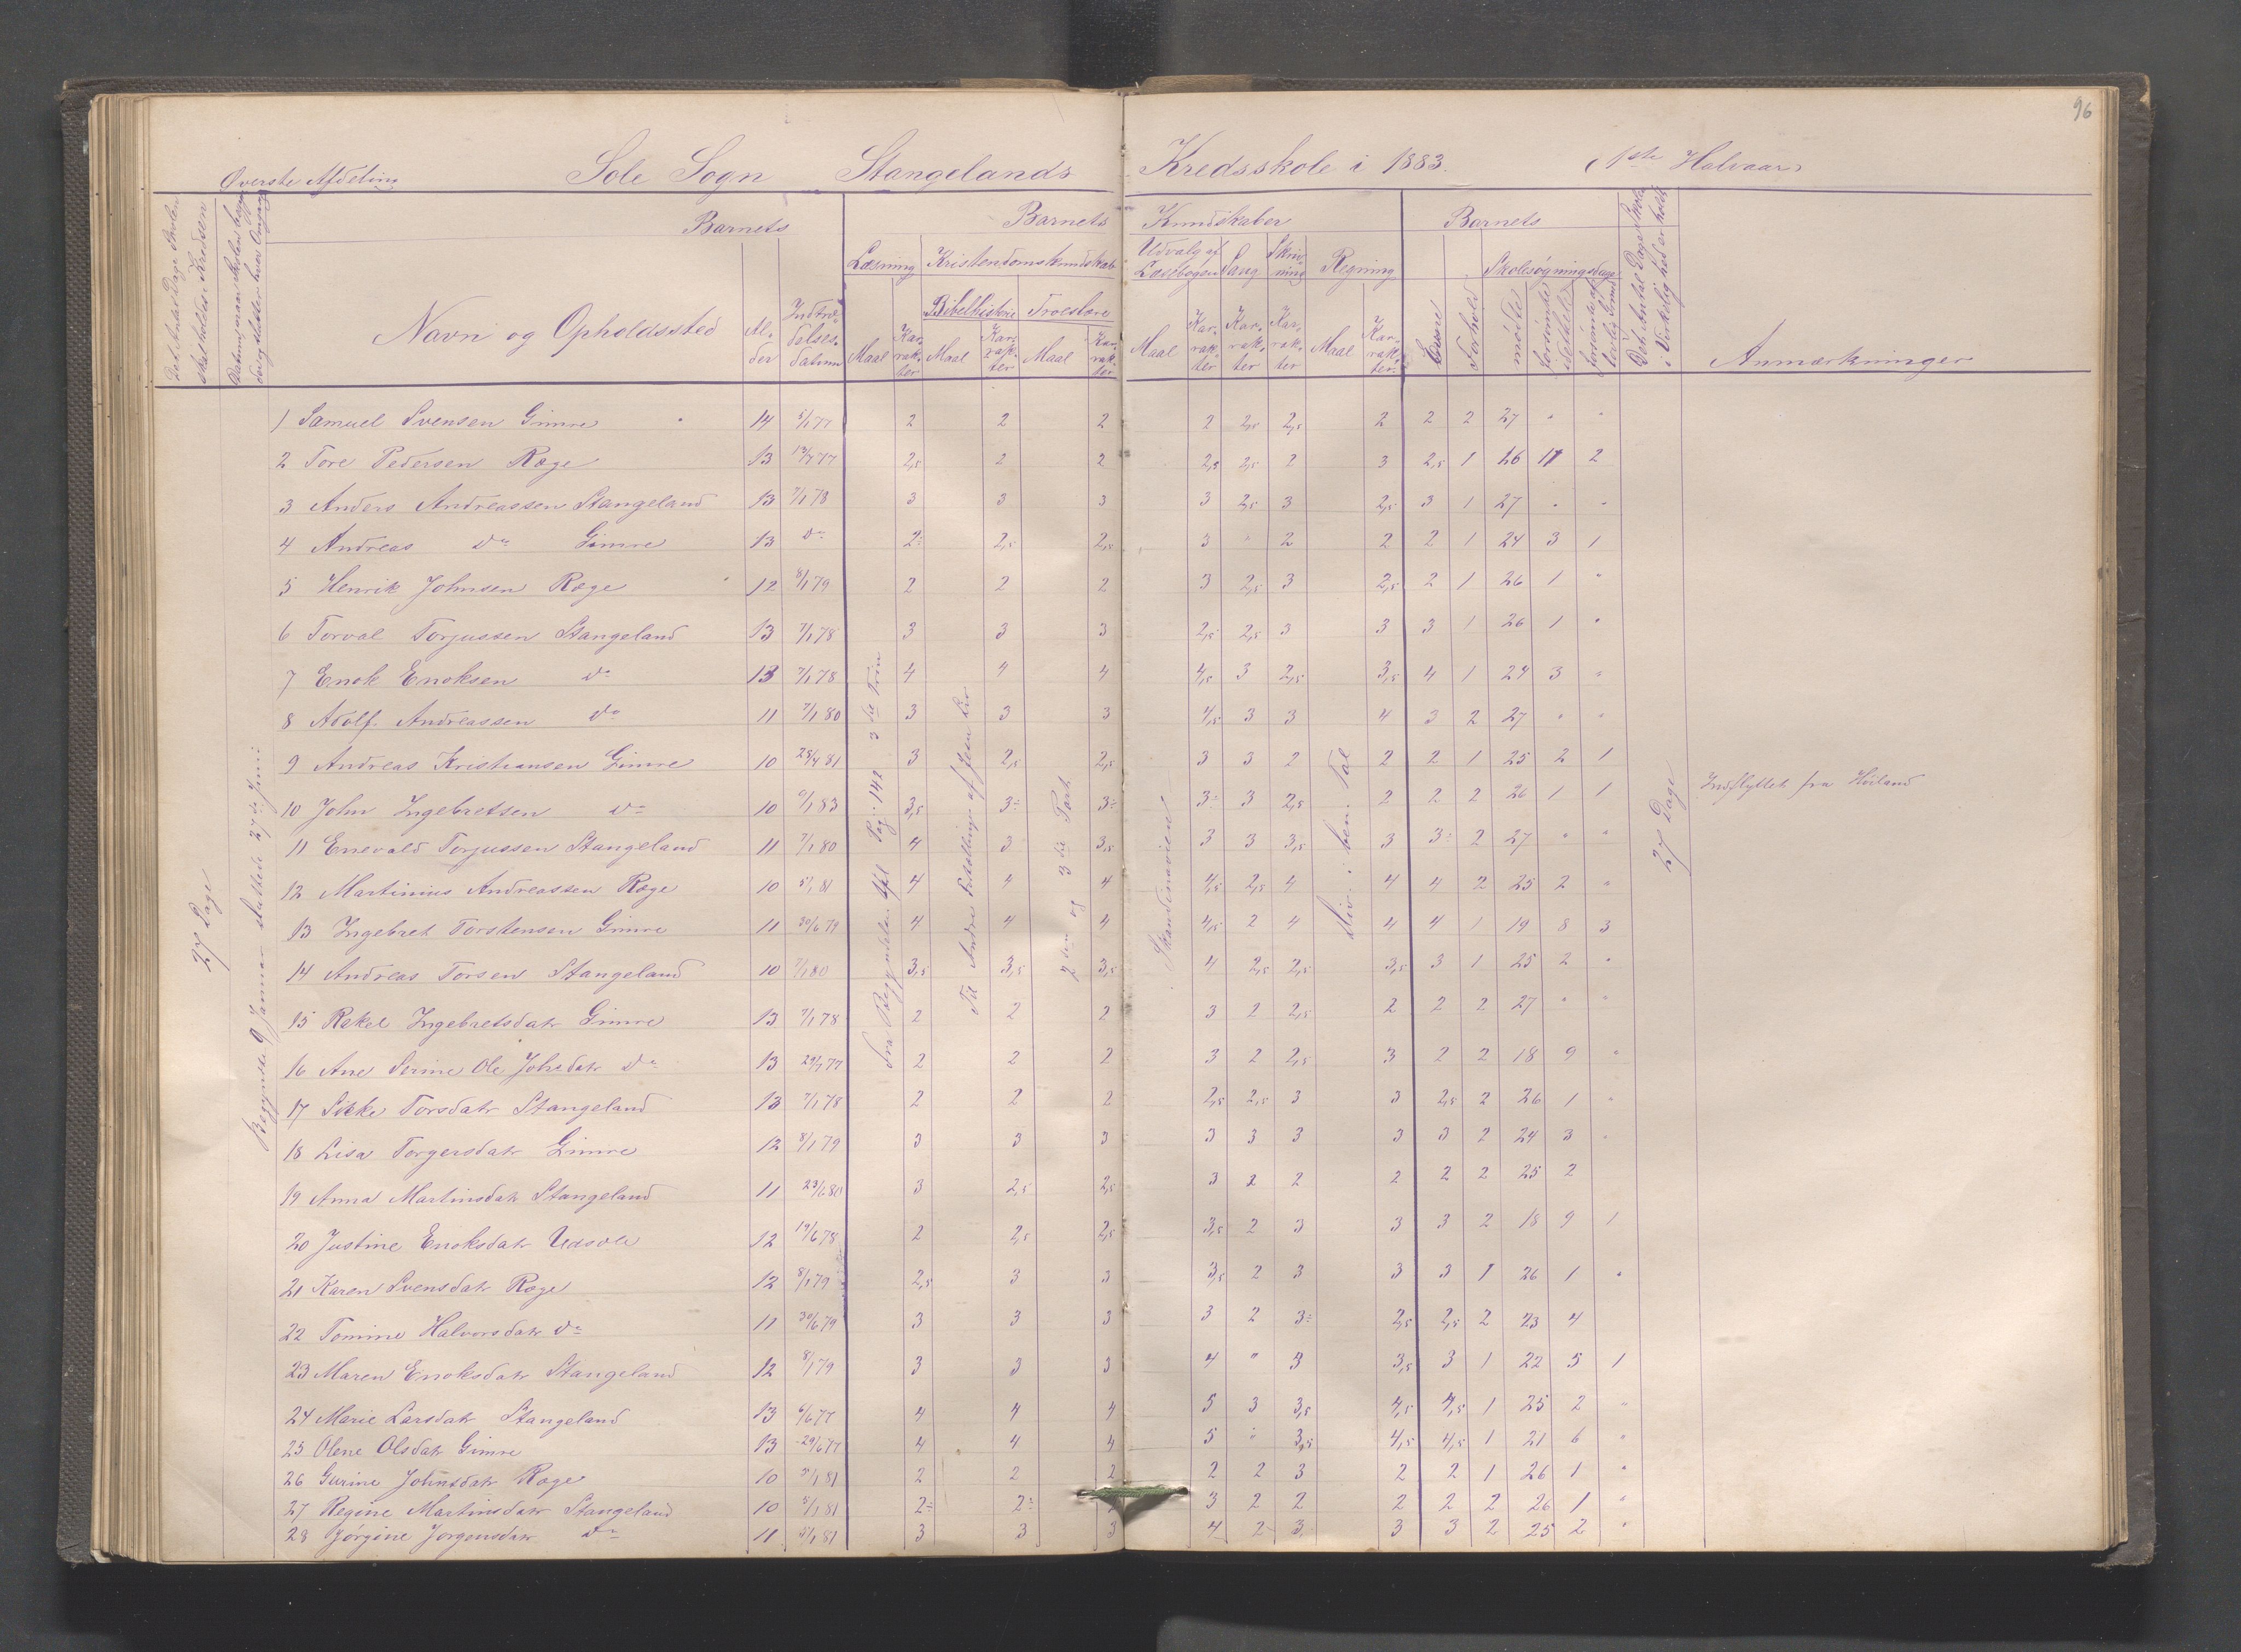 96
Øverste Afdeling Sole Sogn Stangelands Kredsskole i 1883. (1ste Halvaar)
Barnets Barnets Kundskaber Barnets
Læsning Kristendomskundskab Udvalg af Læsebogen Sang Skrivning Regning Skolesøgningsdage
Bibelhistorie Troeslære
Navn og Opholdssted Alder Indtrædelsesdatum Maal Karrakter Maal Karrakter Maal Karrakter Maal Karrakter Karrakter Karrakter Maal Karrakter Evner Forhold mødte forsømte Anmærkninger
27 Dage
Begyndte 9 Januar sluttede 27de Juni
Pag: 142 3die Trin
Til Andre Fortællinger af Jesu Liv
2den og 3die Part
Skandinavien
27 Dage
1 Samuel Svensen Gimre 14 5/1 77 2 2 2 2 2,5 2,5 2 2 2 27 " "
2 Tore Pedersen Ræge 13 2,5 2 2 2,5 2,5 2 3 2,5 1 26 2
3 Anders Andreassen Stangeland 13 7/1 78 3 3 3 3 2,5 3 2,5 3 1 27 " "
4 Andreas do Gimre 13 do 2÷ 2,5 2,5 3 " 2 2 2 1 24 3 1
5 Henrik Johnsen Ræge 12 8/1 79 2 2 2 3 2,5 3 2,5 2 1 26 1 "
6 Torval Torjussen Stangeland 13 7/1 78 3 3 3 2,5 2,5 3 3 3 1 26 1 "
7 Enok Enoksen do 13 7/1 78 4 4 4 4,5 3 2,5 3,5 4 1 24 3 "
8 Adolf Andreassen do 11 7/1 80 3 3 3 4,5 3 3 4 3 2 27 " "
9 Andreas Kristiansen Gimre 10 28/4 81 3 2,5 2,5 3 3 2 2 2 1 25 2 1
10 John Ingebretsen do 10 9/1 83 3,5 3÷ 3÷ 3÷ 3 2,5 2 2 2 26 1 1 Indflyttet fra Høiland
11 Enevald Torjussen Stangeland 11 7/1 80 4 3 3,5 3 3 3,5 3 3÷ 2 27 " "
12 Martinius Andreassen Ræge 10 5/1 81 4 4 4 4,5 2,5 4 4 4 2 25 2 "
13 Ingebret Torstensen Gimre 11 30/6 79 4 4 4 4,5 2 4 4 4 1 19 8 3
14 Andreas Torsen Stangeland 10 7/1 80 3,5 3,5 3,5 4 2,5 2,5 3,5 3 1 25 2 "
15 Rakel Ingebretsdatr Gimre 13 7/1 78 2 2 2 3 2 2,5 2 2 2 27 " "
16 Ane Serine Ole Johsdatr do 13 2 2 2 3 2 2,5 3 2 2 18 9 "
17 Sikke Torsdatr Stangeland 13 7/1 78 2 2 2 2,5 2,5 3 3 2,5 2 26 1 "
18 Lisa Torgersdatr Gimre 12 8/1 79 3 3 3 3 3 3 3 3 2 24 3 "
19 Anna Martinsdatr Stangeland 11 23/6 80 3 2,5 2,5 3 2 2 2 2 2 25 2
20 Justine Enoksdatr Udsole 12 19/6 78 2 2,5 2,5 3,5 2 3 3 3 2 18 9 1
21 Karen Svensdatr Ræge 12 8/1 79 2,5 3 3 3,5 2 3 3 3 1 26 1 "
22 Tomine Halvorsdatr do 11 30/6 79 3 3 3 3 2 3÷ 2,5 2,5 2 23 4
23 Maren Enoksdatr Stangeland 12 8/1 79 3 3 3 4 " 3 3,5 3 1 22 5 1
24 Marie Larsdatr Stangeland 13 6/6 77 4 4 4 5 3 3,5 4,5 4,5 1 25 2 "
25 Olene Olsdatr Gimre 13 29/6 77 4 4 4 5 " 3,5 4,5 4,5 1 21 6 "
26 Gurine Johnsdatr Ræge 10 5/1 81 2 2 2 2 2 3 2 2 1 26 1 "
27 Regine Martinsdatr Stangeland 10 5/1 81 2÷ 2÷ 3 2 2 2 2 2 26 1 "
28 Jørgine Jørgensdatr do 11 5/1 81 3 3 3 4 2 3 3 3 2 25 2 "